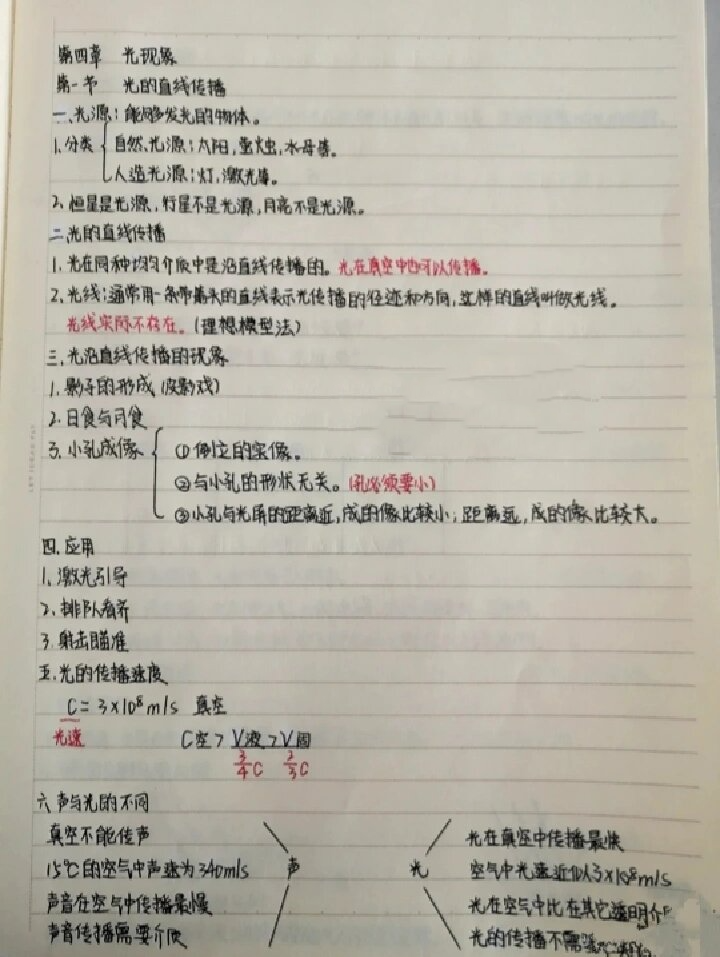 第四章 光现象
第一节 光的直线传播
一、光源：能够发光的物体。
1.分类 自然光源：太阳，萤火虫，水母等。
人造光源：灯，激光等。
2.恒星是光源，行星不是光源，月亮不是光源。
二、光的直线传播
1.光在同种均匀介质中是沿直线传播的。光在真空中也可以传播。
2.光线：通常用一条带箭头的直线表示光传播的径迹和方向，这样的直线叫做光线。
光线实际不存在。(理想模型法)
三、光沿直线传播的现象
1.影子的形成(皮影戏)
2.日食与月食
3.小孔成像 ①倒立的实像。
②与小孔的形状无关。(孔必须要小)
③小孔与光屏的距离近，成的像比较小；距离远，成的像比较大。
四、应用
1.激光引导
2.排队看齐
3.射击瞄准
五.光的传播速度
C=3×10⁸m/s 真空
光速 C空>V液>V固
3/4C 2/3C
六、声与光的不同
真空不能传声 光在真空中传播最快
15℃的空气中声速为340m/s 声 光 空气中光速近似3×10⁸m/s
声音在空气中传播最慢 光在空气中比在其它透明介
声音传播需要介质 光的传播不需